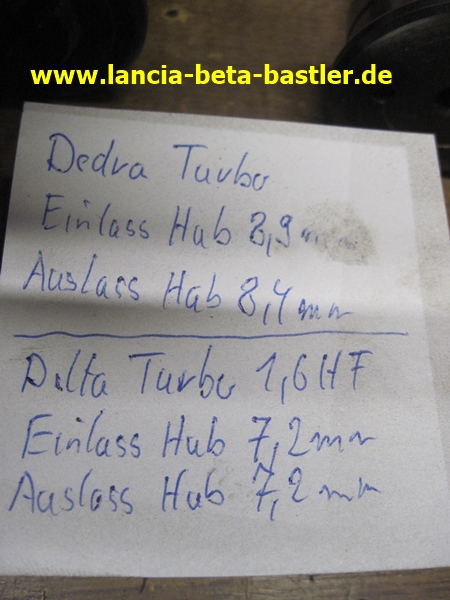 www.lancia-beta-bastler.de
Dedra Turbo
Einlass Hub 8,9 mm
Auslass Hub 8,4 mm
Delta Turbo 1,6 HF
Einlass Hub 7,2 mm
Auslass Hub 7,2 mm